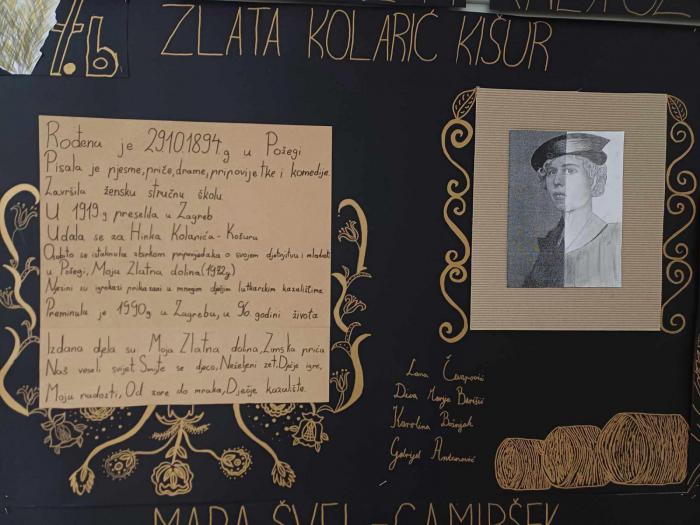 7.b
ZLATA KOLARIĆ KIŠUR
Rođena je 29.10.1894.g u Požegi
Pisala je pjesme, priče, drame, pripovijetke i komedije.
Završila žensku stručnu školu
U 1919g preselila u Zagreb
Udala se za Hinka Kolarića-Košura
se istaknula zbirkom pripovjedaka o svojem djetinjstvu i mladosti
u Požegi, Moja Zlatna dolina
Njezini su igrokazi prikazani u mnogim dječjim lutkarskim kazalištima
Preminula je 1990g u Zagrebu, u 96. godini života
Izdana djela su Moja Zlatna dolina, Zimska priča
Naš veseli svijet, Smijte se djeco, Neželjeni zet, Dječje igre,
Moju radosti, Od zore do mraka, Dječje kazalište.
Lana
Marija Barišić
Karolina Bošnjak
Gabrijel Antunović
MARA ŠVEL-GAMIRŠEK